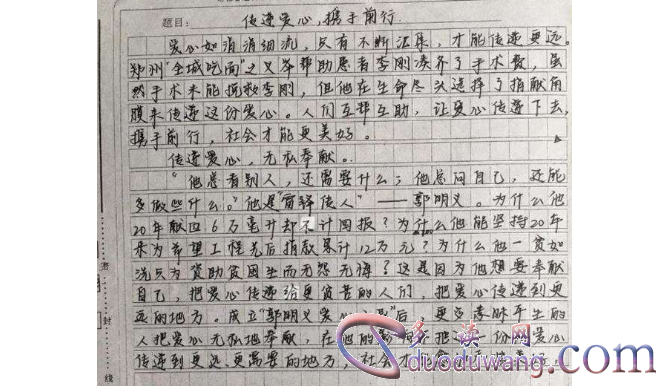 题目： 传递爱心，携手前行.
爱心如涓涓细流，只有不断汇集，才能传递更远。
郑州“全城吃面”之义举帮助患者李刚凑齐了手术费，虽
然手术未能挽救李刚，但他在生命尽头选择了捐献角
膜来传递这份爱心。人们互帮互助，让爱心传递下去，
携手前行，社会才能更美好。
传递爱心，无私奉献。
“他总看别人，还需要什么；他总问自己，还能
多做些什么。”他是“雷锋传人”——郭明义。为什么他
20年献血6万毫升却不计回报？为什么他能坚持20年
来为希望工程先后捐款累计12万元？为什么他一贫如
洗只为资助贫困生而无怨无悔？这是因为他想要奉献
自己，把爱心传递给更贫苦的人们，把爱心传递到更
远的地方。成立“郭明义爱心 后，更
人把爱心无私地奉献，在他的 把 份 爱心
传递到更远更需要的地方，社会才
密
封
线
多读网
duoduwang.com